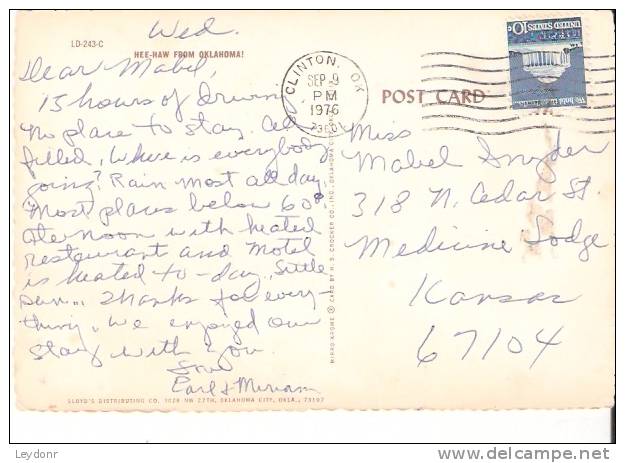 Wed.
LD-243-C
HEE-HAW FROM OKLAHOMA!
Dear Mabel,
15 hours of driving
No place to stay. All
filled, Where is everybody
going? Rain most all day.
Most places below 60°
afternoon with heated
restaurant and Motel
is heated to-day. Little
sun... Thanks for every-
thing. We enjoyed our
stay with you.
Love
Earl & Miriam
LLOYD'S DISTRIBUTING CO. 1028 NW 27TH, OKLAHOMA CITY, OKLA., 73107
MIRRO-KROME ® CARD BY H. S. CROCKER CO., INC., OKLAHOMA
CLINTON, OK
SEP 9
PM
1976
POST CARD
UNITED STATES 10c
Miss
Mabel Snyder
318 N. Cedar St.
Medicine Lodge
Kansas
67104
Leydonr
delcampe.net